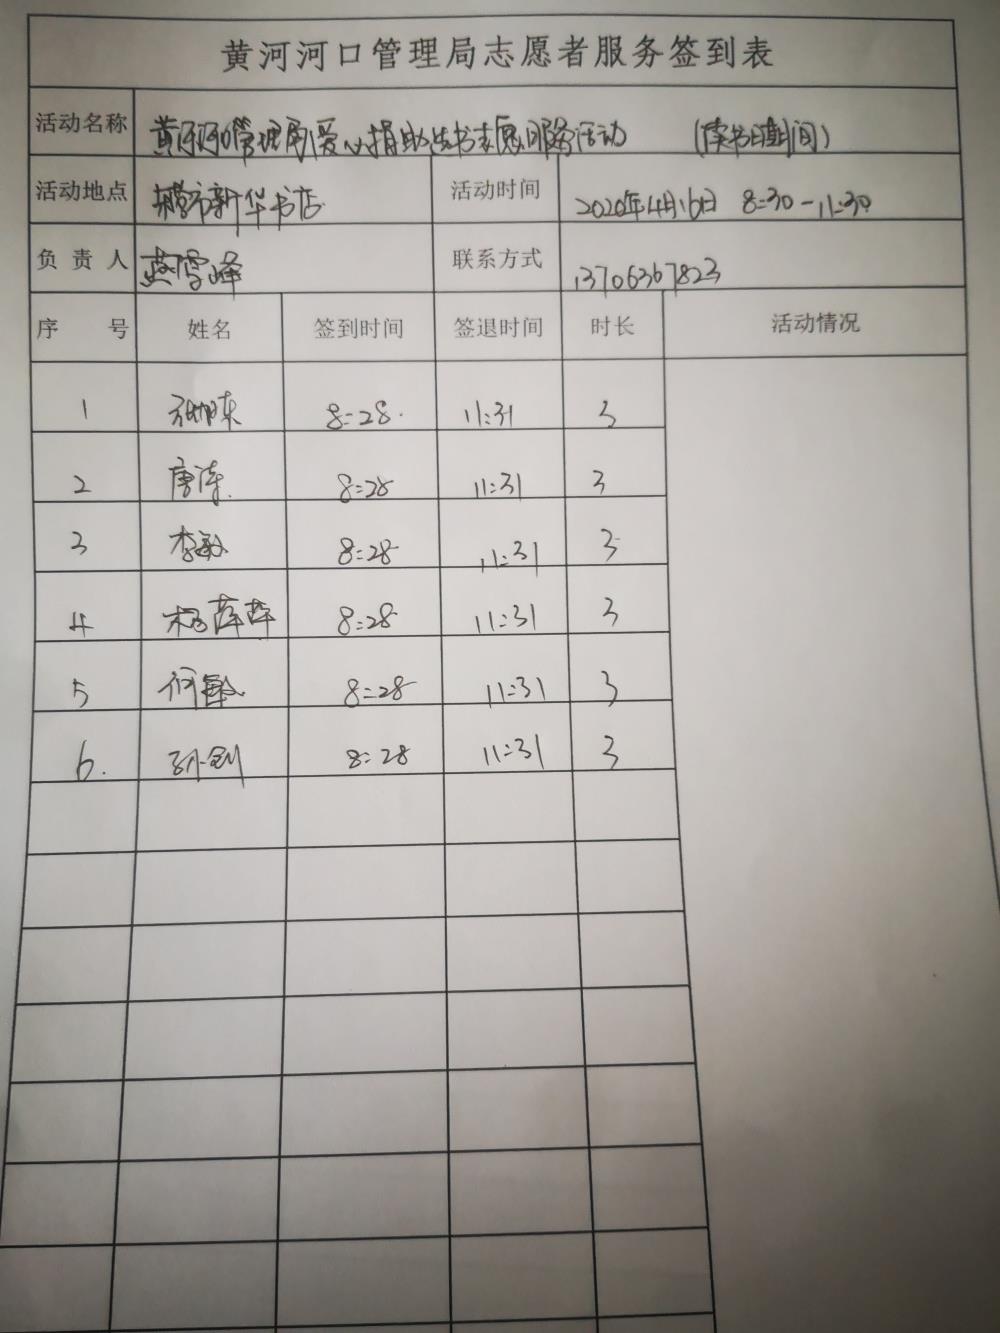 黄河河口管理局志愿者服务签到表
活动名称 黄河河口管理局爱心捐助选书志愿服务活动 (读书日期间)
活动地点 东营市新华书店 活动时间 2020年4月16日 8:30-11:30
负责人 燕雪峰 联系方式 13706367823
序号 姓名 签到时间 签退时间 时长 活动情况
1 8:28 11:31 3
2 唐涛 8:28 11:31 3
3 李敏 8:28 11:31 3
4 杨萍萍 8:28 11:31 3
5 何 8:28 11:31 3
6. 孙剑 8:28 11:31 3